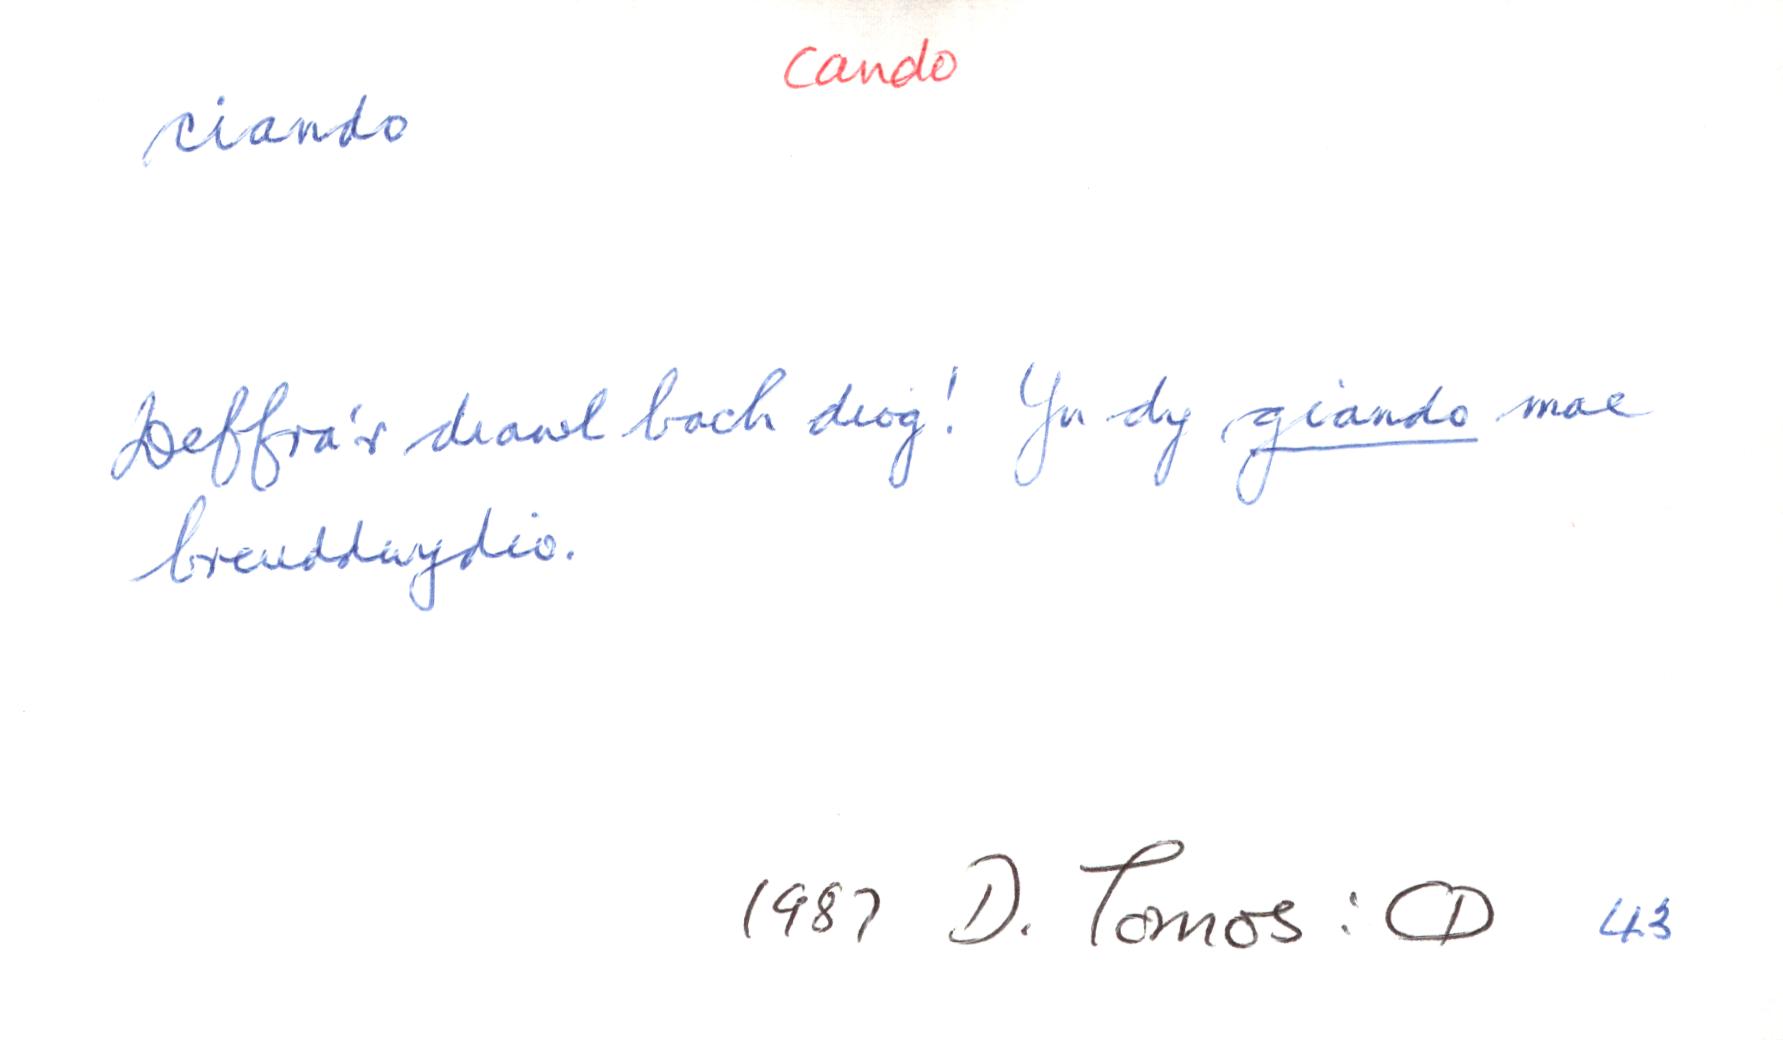 cando
ciando
Deffra'r diawl bach diog! Yn dy giando mae
breuddwydio.
1987 D. Tomos: CD 43